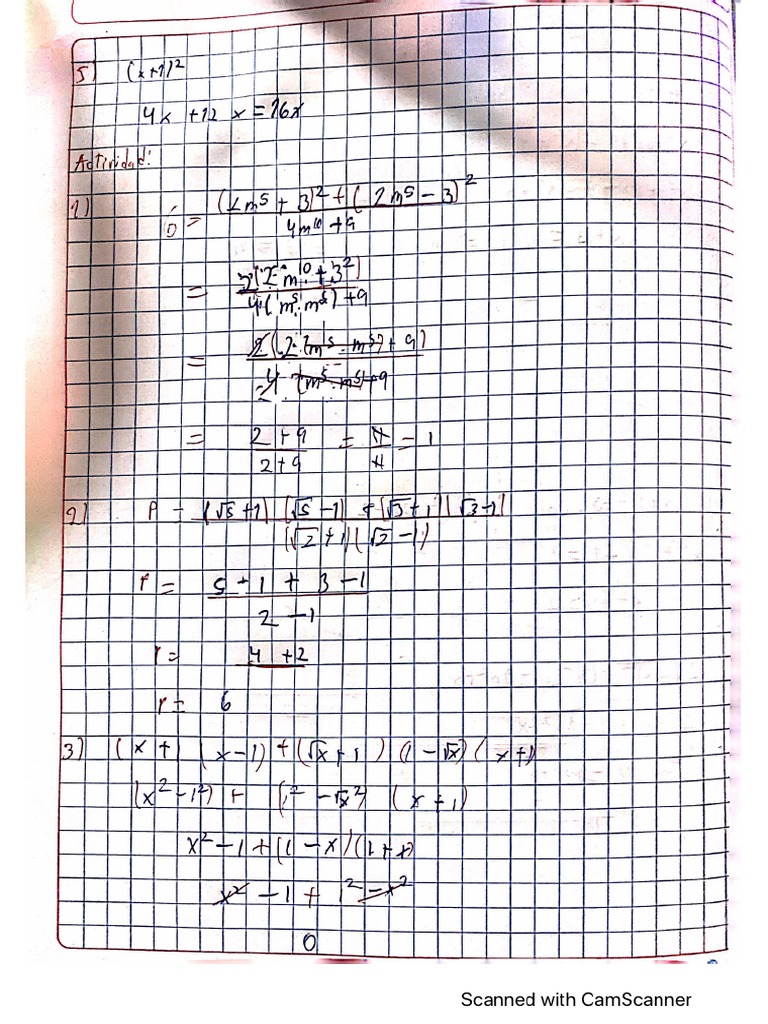 5) (x+1)²
4x + 12 x = 16x
Actividad:
1) D = (2m⁵ + 3)² + (2m⁵ - 3)² / 4m¹⁰ + 9
= 2(2·m¹⁰ + 3²) / 4(m⁵·m⁵) + 9
= 2(2·2m⁵·m⁵) + 9) / 4 (m⁵·m⁵) + 9
= 2 + 9 / 2 + 9 = 11 / 11 = 1
2) P = (√5 + 1) (√5 - 1) + (√3 + 1) (√3 - 1) / (√2 + 1) (√2 - 1)
r = 5 - 1 + 3 - 1 / 2 - 1
r = 4 + 2
r = 6
3) (x + 1 (x - 1) + (√x + 1) (1 - √x) (x + 1)
(x² - 1²) + (1² - √x²) (x + 1)
x² - 1 + (1 - x) (1 + x)
x² - 1 + 1² - x²
0
Scanned with CamScanner